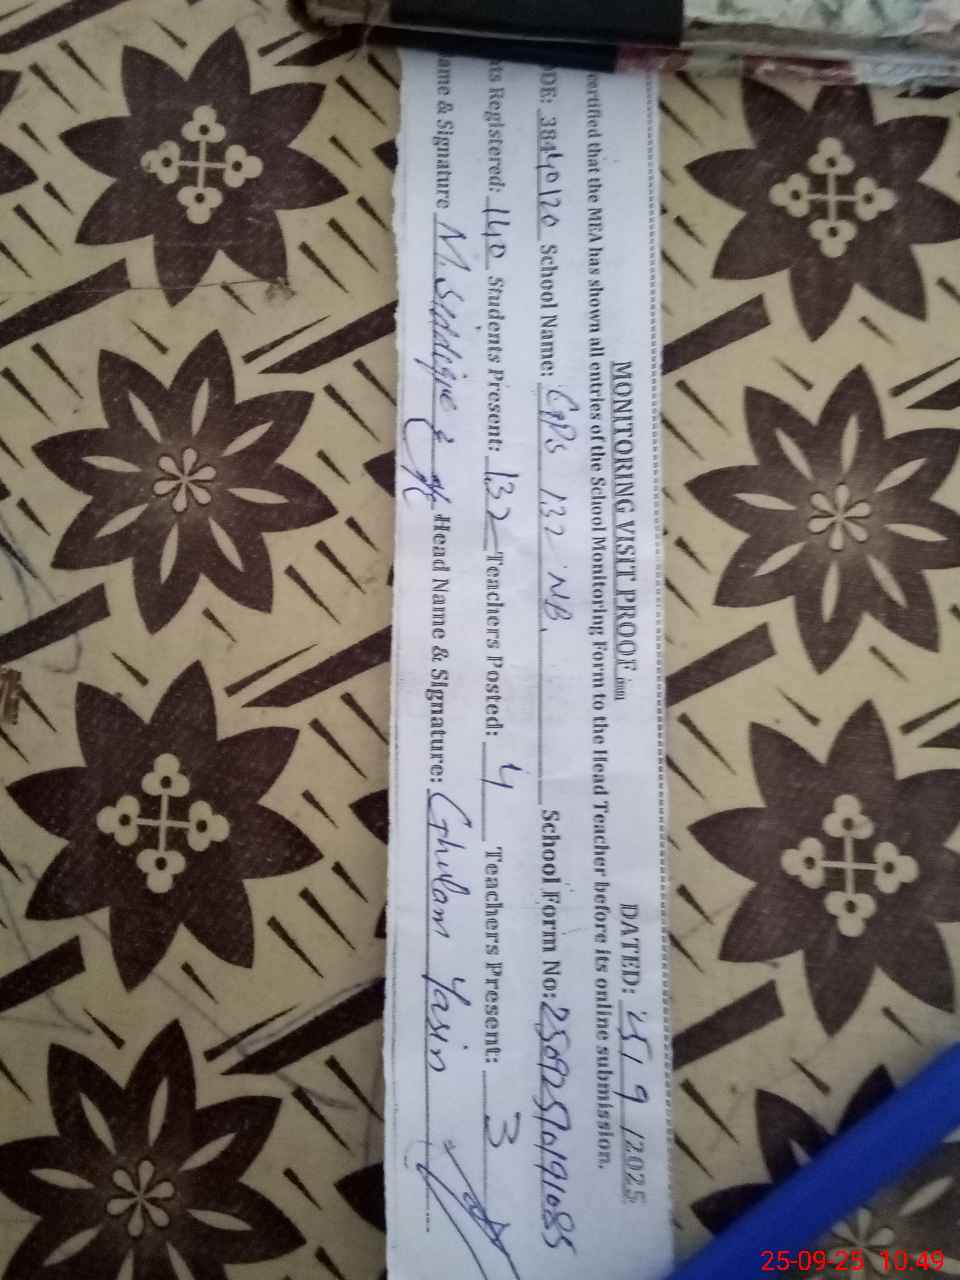 MONITORING VISIT PROOF DATED: 25/9/2025
certified that the MEA has shown all entries of the School Monitoring Form to the Head Teacher before its online submission.
ODE: 38440120 School Name: GPS 132 NB. School Form No:
nts Registered: 140 Students Present: 132 Teachers Posted: 4 Teachers Present: 3
ame & Signature M. Siddique Head Name & Signature: Ghulam Yasin
25-09-25 10:49